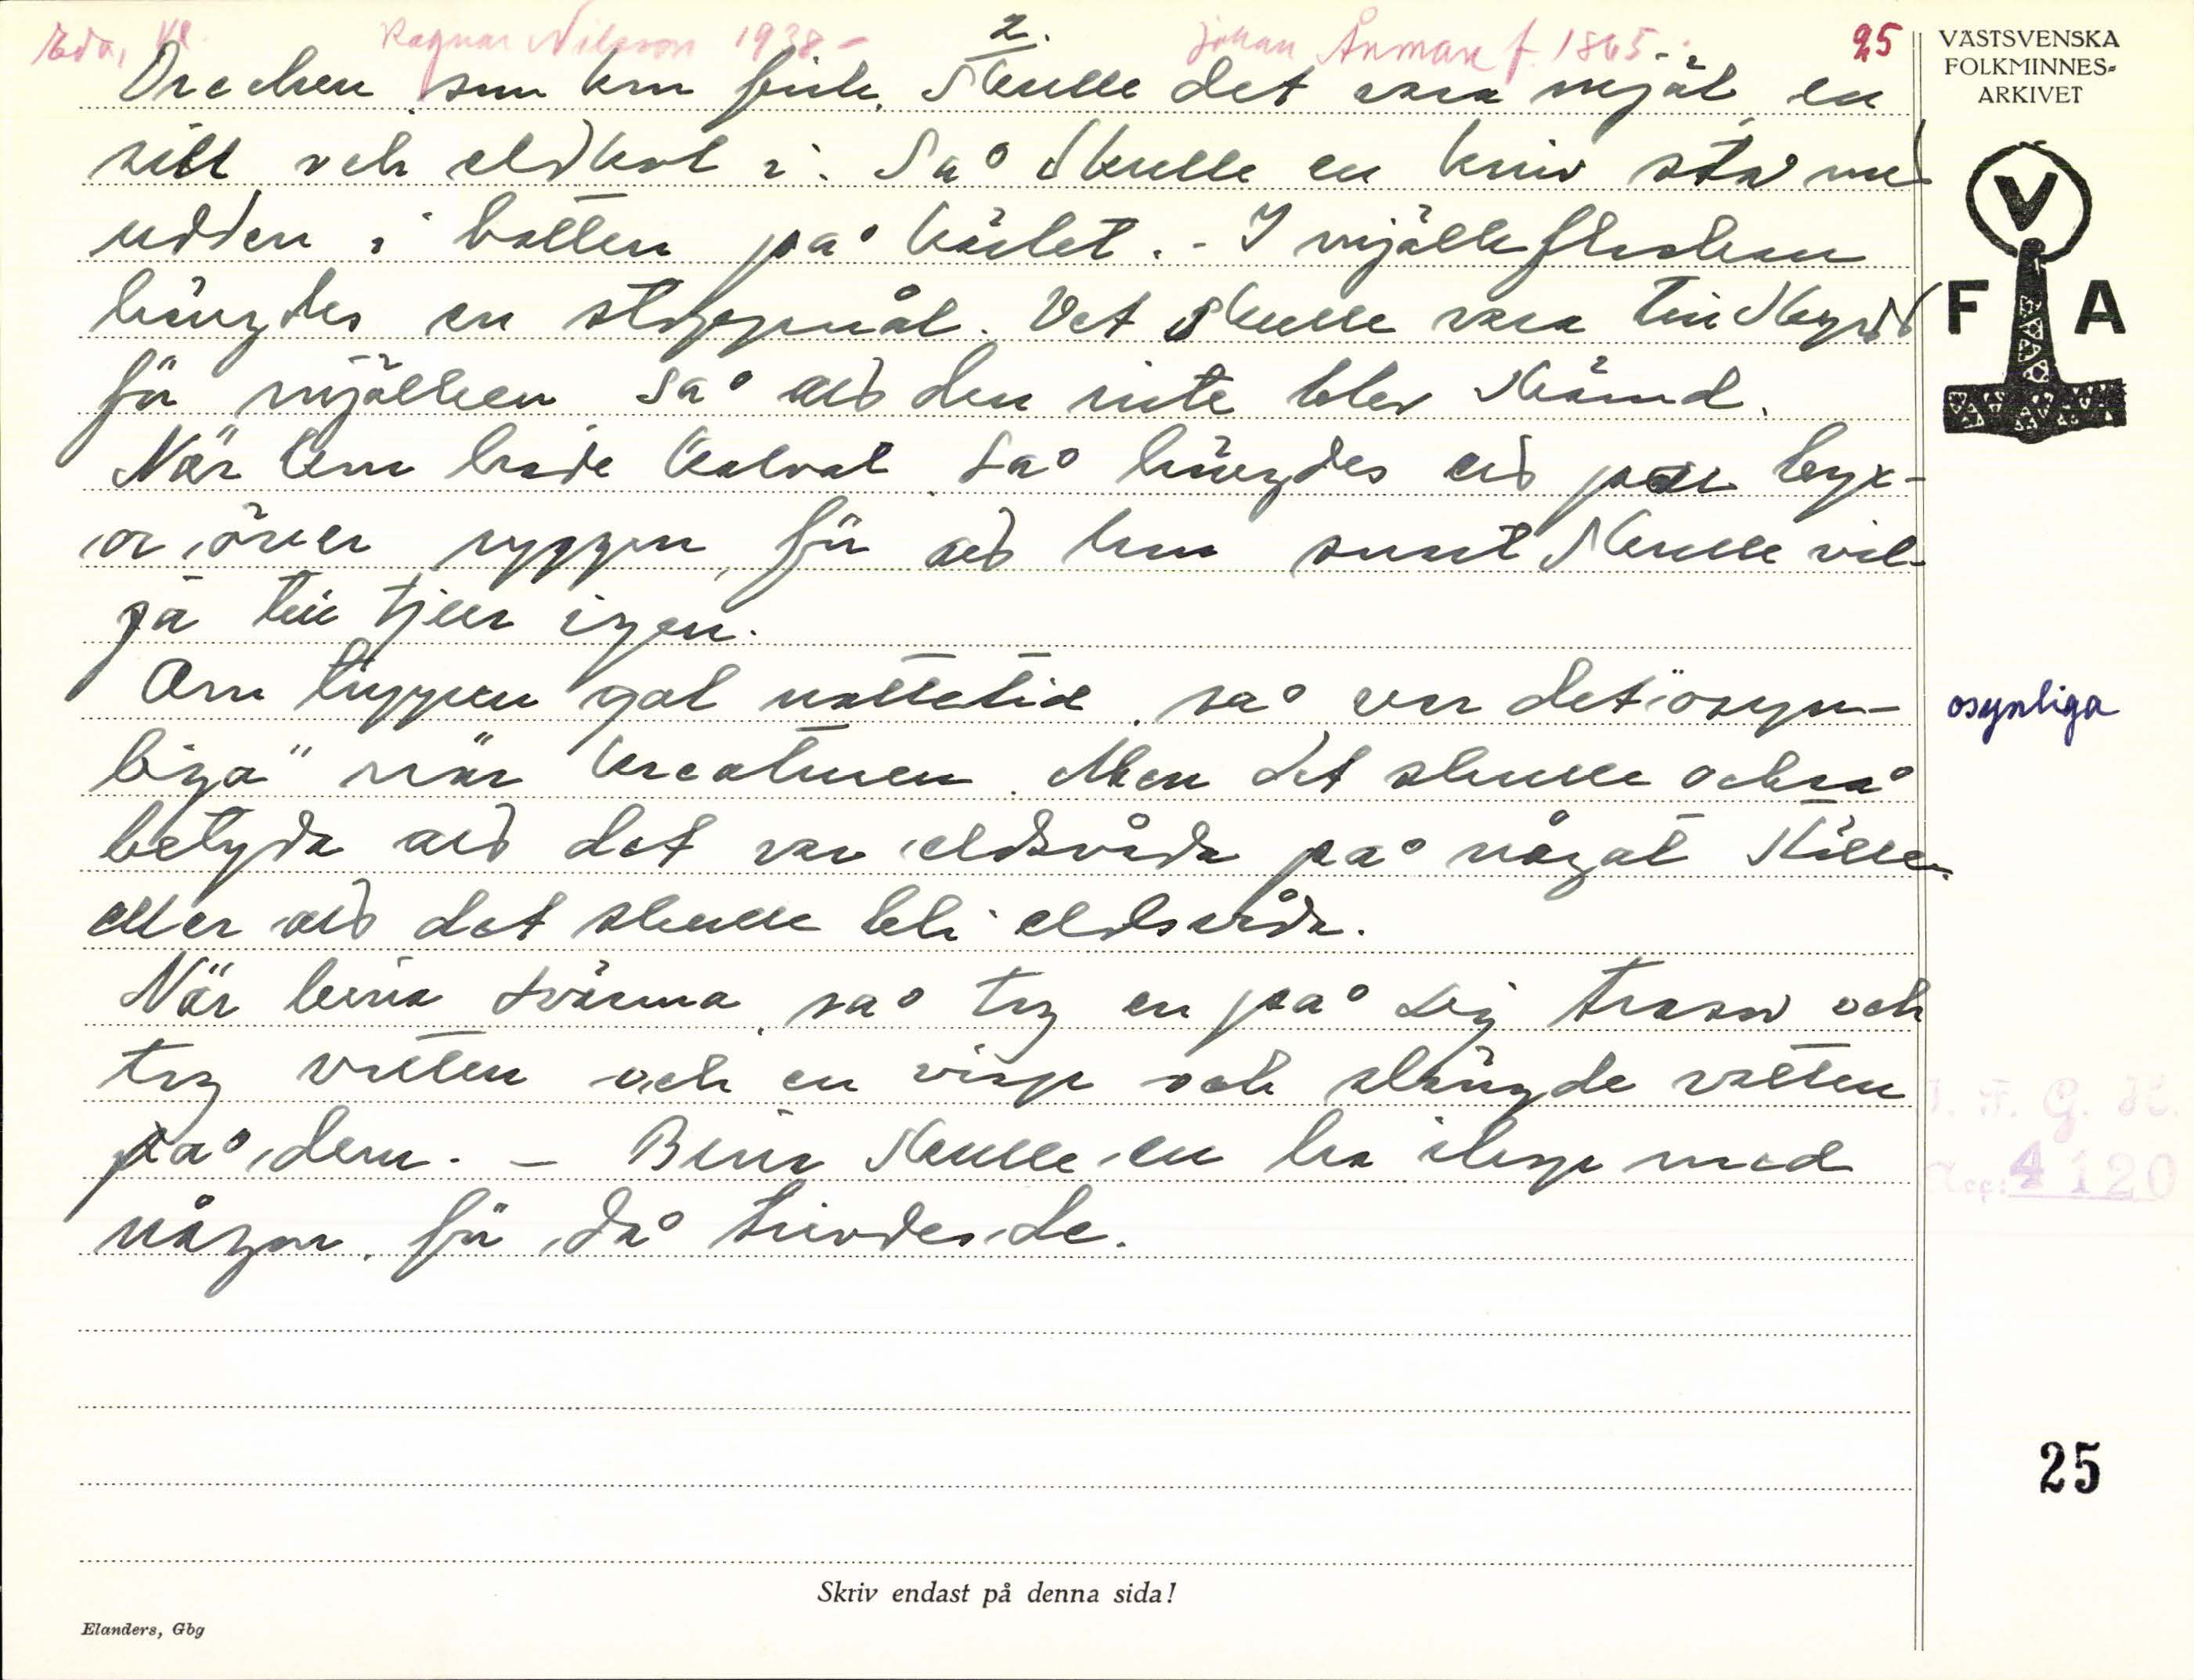 Eda, Vl. Ragnar Nilsson 1938 - 2. Johan Årman f. 1865. 25
VÄSTSVENSKA
FOLKMINNES-
ARKIVET
V
F A
Drecken som kon feick, skulle det vara mjöl, en
sill och eldkol i. Så skulle en kniv stå med
udden i botten på kärlet. - I mjölkflaskan
hängdes en stoppnål. Det skulle vara till skydd
för mjölken så att den inte blev skämd.
När kon hade kalvat så hängdes ett par byx-
or över ryggen, för att hon snart skulle vil-
ja till tjur igen.
Om tuppen gol nattetid, så var det "osyn-
liga" när kreaturen. Men det skulle också
betyda att det var eldsvåda på något ställe
eller att det skulle bli eldsvåda.
När bina svärma, så tog en på sig trasor och
tog vatten och en visp och slängde vatten
på dem. - Bina skulle en ha ihop med
någon, för då trivdes de.
osynliga
I. F. G. H.
Acc: 4120
25
Skriv endast på denna sida!
Elanders, Gbg